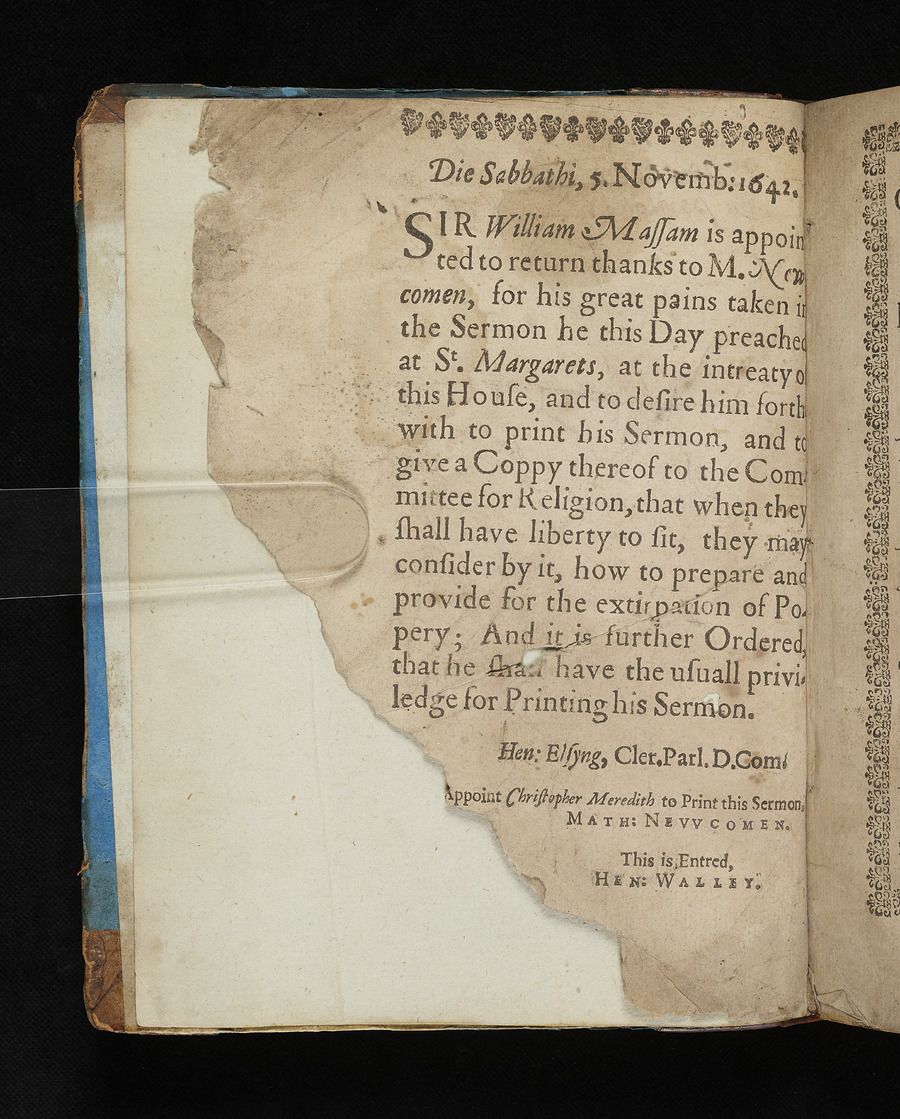 Die Sabbathi, 5. Novemb: 1642.
SIR William Maſſam is appoin
ted to return thanks to M. New
comen, for his great pains taken in
the Sermon he this Day preached
at St. Margarets, at the intreaty o
this Houſe, and to deſire him forth
with to print his Sermon, and to
give a Coppy thereof to the Com-
mittee for Religion, that when they
ſhall have liberty to ſit, they may
conſider by it, how to prepare and
provide for the extirpation of Po-
pery; And it is further Ordered,
that he ſhall have the uſuall privi-
ledge for Printing his Sermon.
Hen: Elſyng, Cler. Parl. D. Com:
Appoint Chriſtopher Meredith to Print this Sermon,
MATH: NEVVCOMEN.
This is Entred,
HEN: WALLEY.